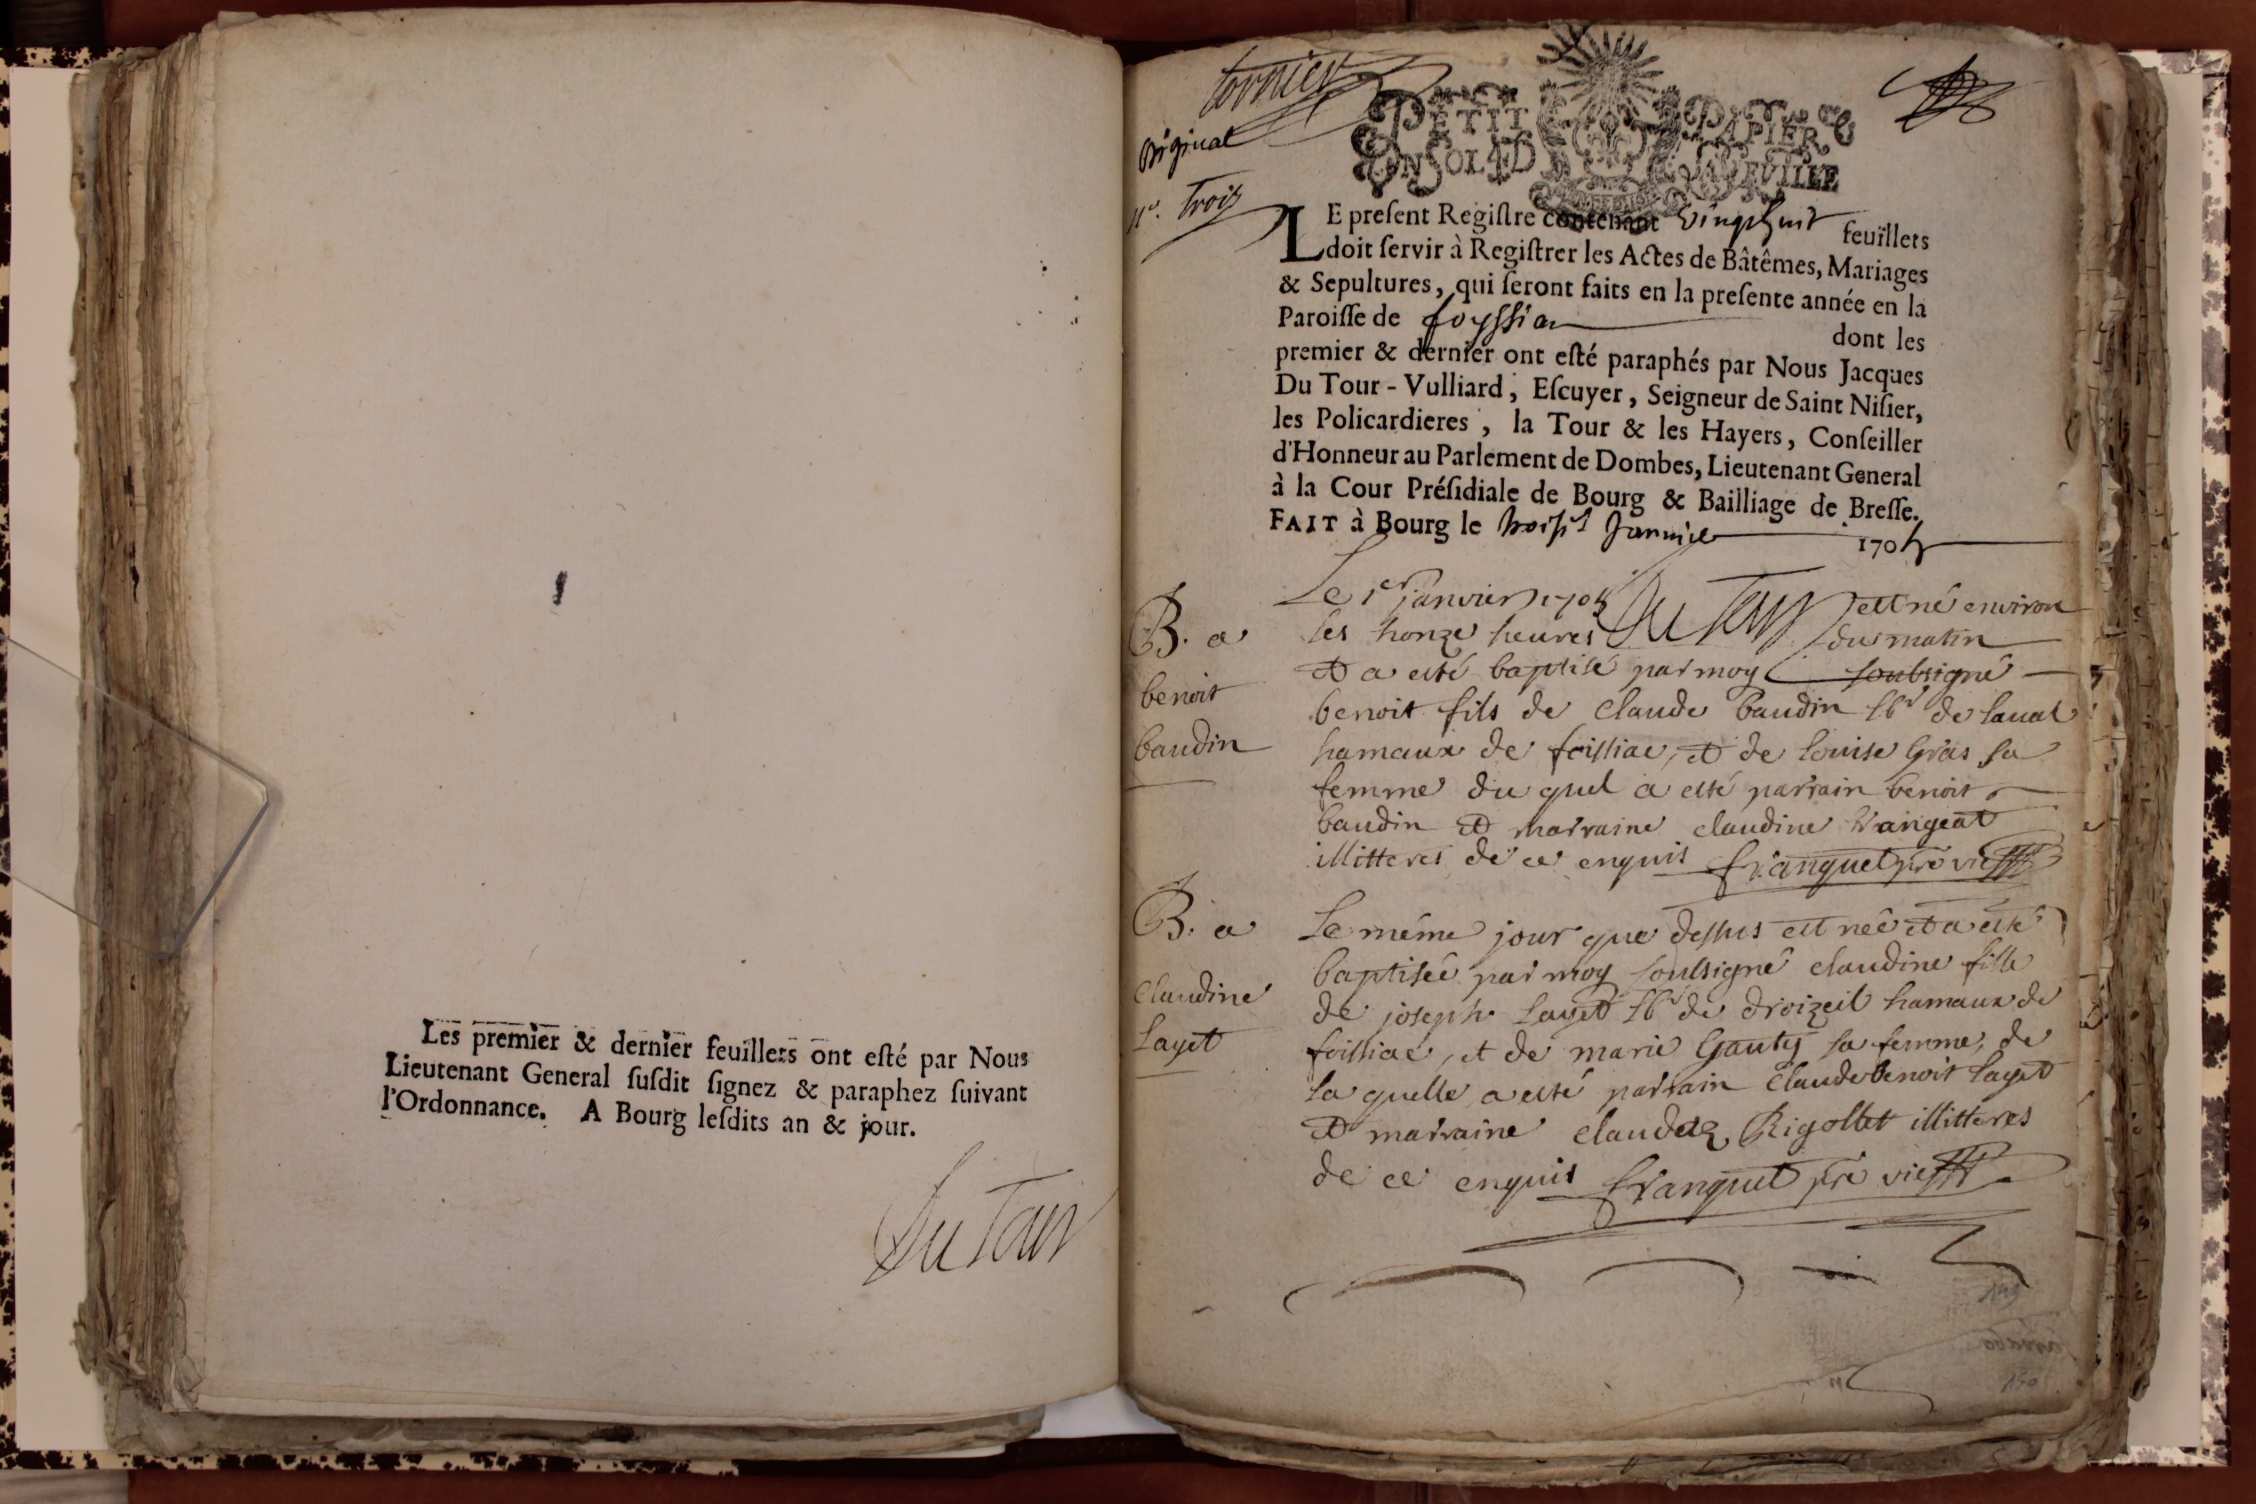 Les premier & dernier feuillets ont esté par Nous
Lieutenant General susdit signez & paraphez suivant
l'Ordonnance. A Bourg lesdits an & jour.
Du Tour
Original
N.º Trois
PETIT PAPIER
UN SOL 4 D LA FEUILLE
LE present Registre contenant vingt huit feuillets
doit servir à Registrer les Actes de Bâtêmes, Mariages
& Sepultures, qui seront faits en la presente année en la
Paroisse de foyssia dont les
premier & dernier ont esté paraphés par Nous Jacques
Du Tour-Vulliard, Escuyer, Seigneur de Saint Nisier,
les Policardieres, la Tour & les Hayers, Conseiller
d'Honneur au Parlement de Dombes, Lieutenant General
à la Cour Présidiale de Bourg & Bailliage de Bresse.
FAIT à Bourg le Janvier 170
B. a
benoit
baudin
Le 1er janvier Du Tour est né environ
les honze heures du matin
et a esté baptisé par moy soubsigné
benoit fils de claude baudin lbr de laual
hamaux de foissiac, et de louise Gras sa
femme du quel a esté parrain benoit
baudin et marraine claudine
illitteres de ce enquis franquet pre vic
B. a
Claudine
layet
Le même jour que dessus est neê et a esté
baptiseê par moy soubsigné claudine fille
de joseph layet lbr de droizeil hamaux de
foissiac, et de marie Gauty sa femme, de
la quelle a esté parrain claude benoit layet
et marraine Rigollet illitteres
de ce enquis franquet pre vic
149
150